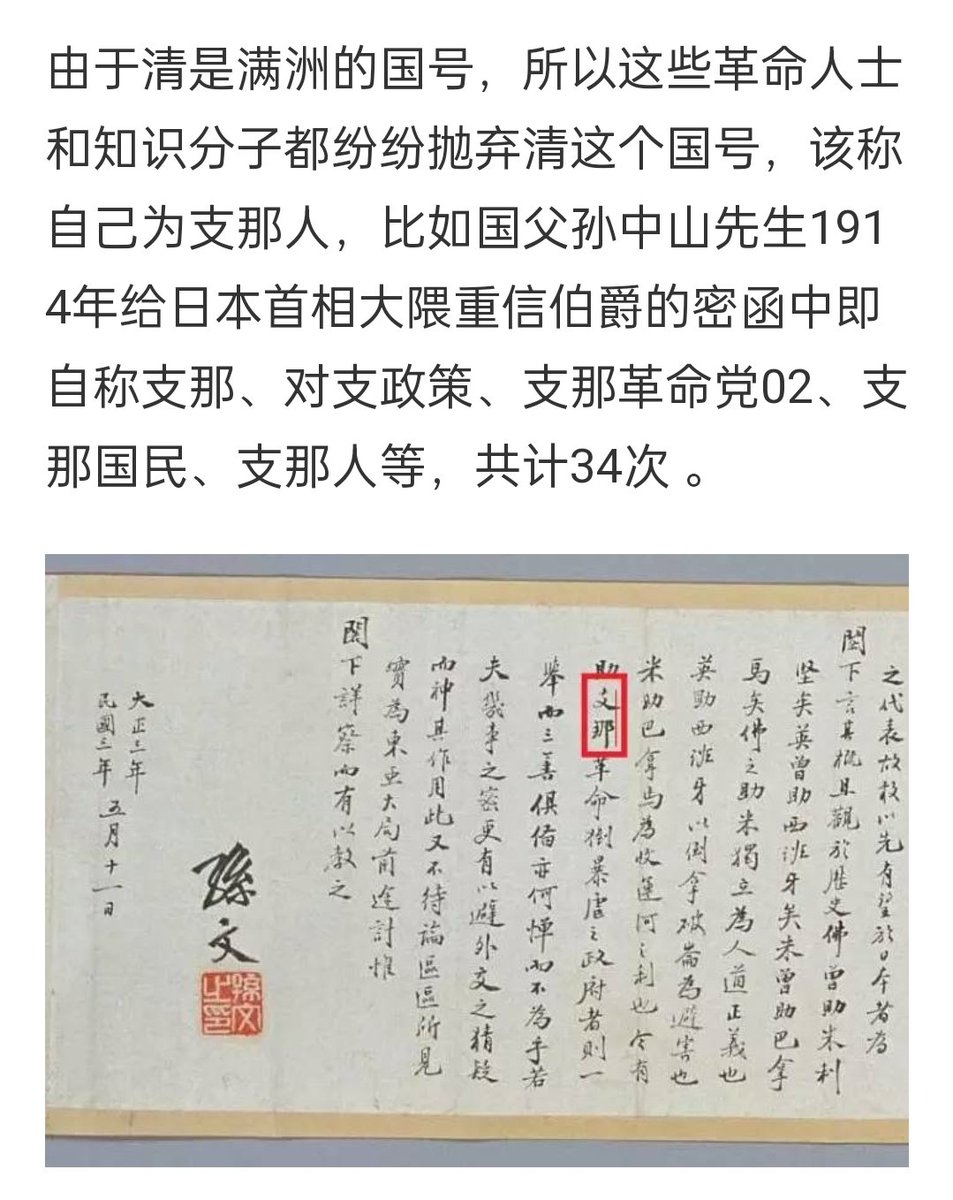 由于清是满洲的国号，所以这些革命人士
和知识分子都纷纷抛弃清这个国号，该称
自己为支那人，比如国父孙中山先生191
4年给日本首相大隈重信伯爵的密函中即
自称支那、对支政策、支那革命党02、支
那国民、支那人等，共计34次 。
之代表故敢以先有望於日本者為
閣下言其概且觀於歷史佛曾助米利
堅矣英曾助西班牙矣米曾助巴拿
馬矣佛之助米獨立為人道正義也
英助西班牙以倒拿破崙為避害也
米助巴拿馬為收運河之利也今有
助支那革命倒暴虐之政府者則一
舉而三善俱備亦何憚而不為乎若
夫幾事之密更有以避外交之猜疑
而神其作用此又不待論區區所見
實為東亞大局前途計惟
閣下詳察而有以教之
孫文
孫文之印
大正三年
民國三年 五月十一日